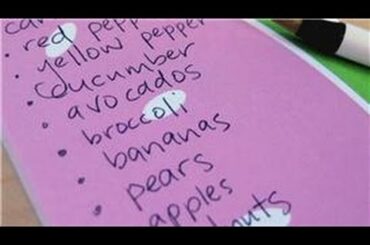 • red pepp
• yellow pepper
• cucumber
• avocados
• broccoli
• bananas
• pears
• apples
nuts